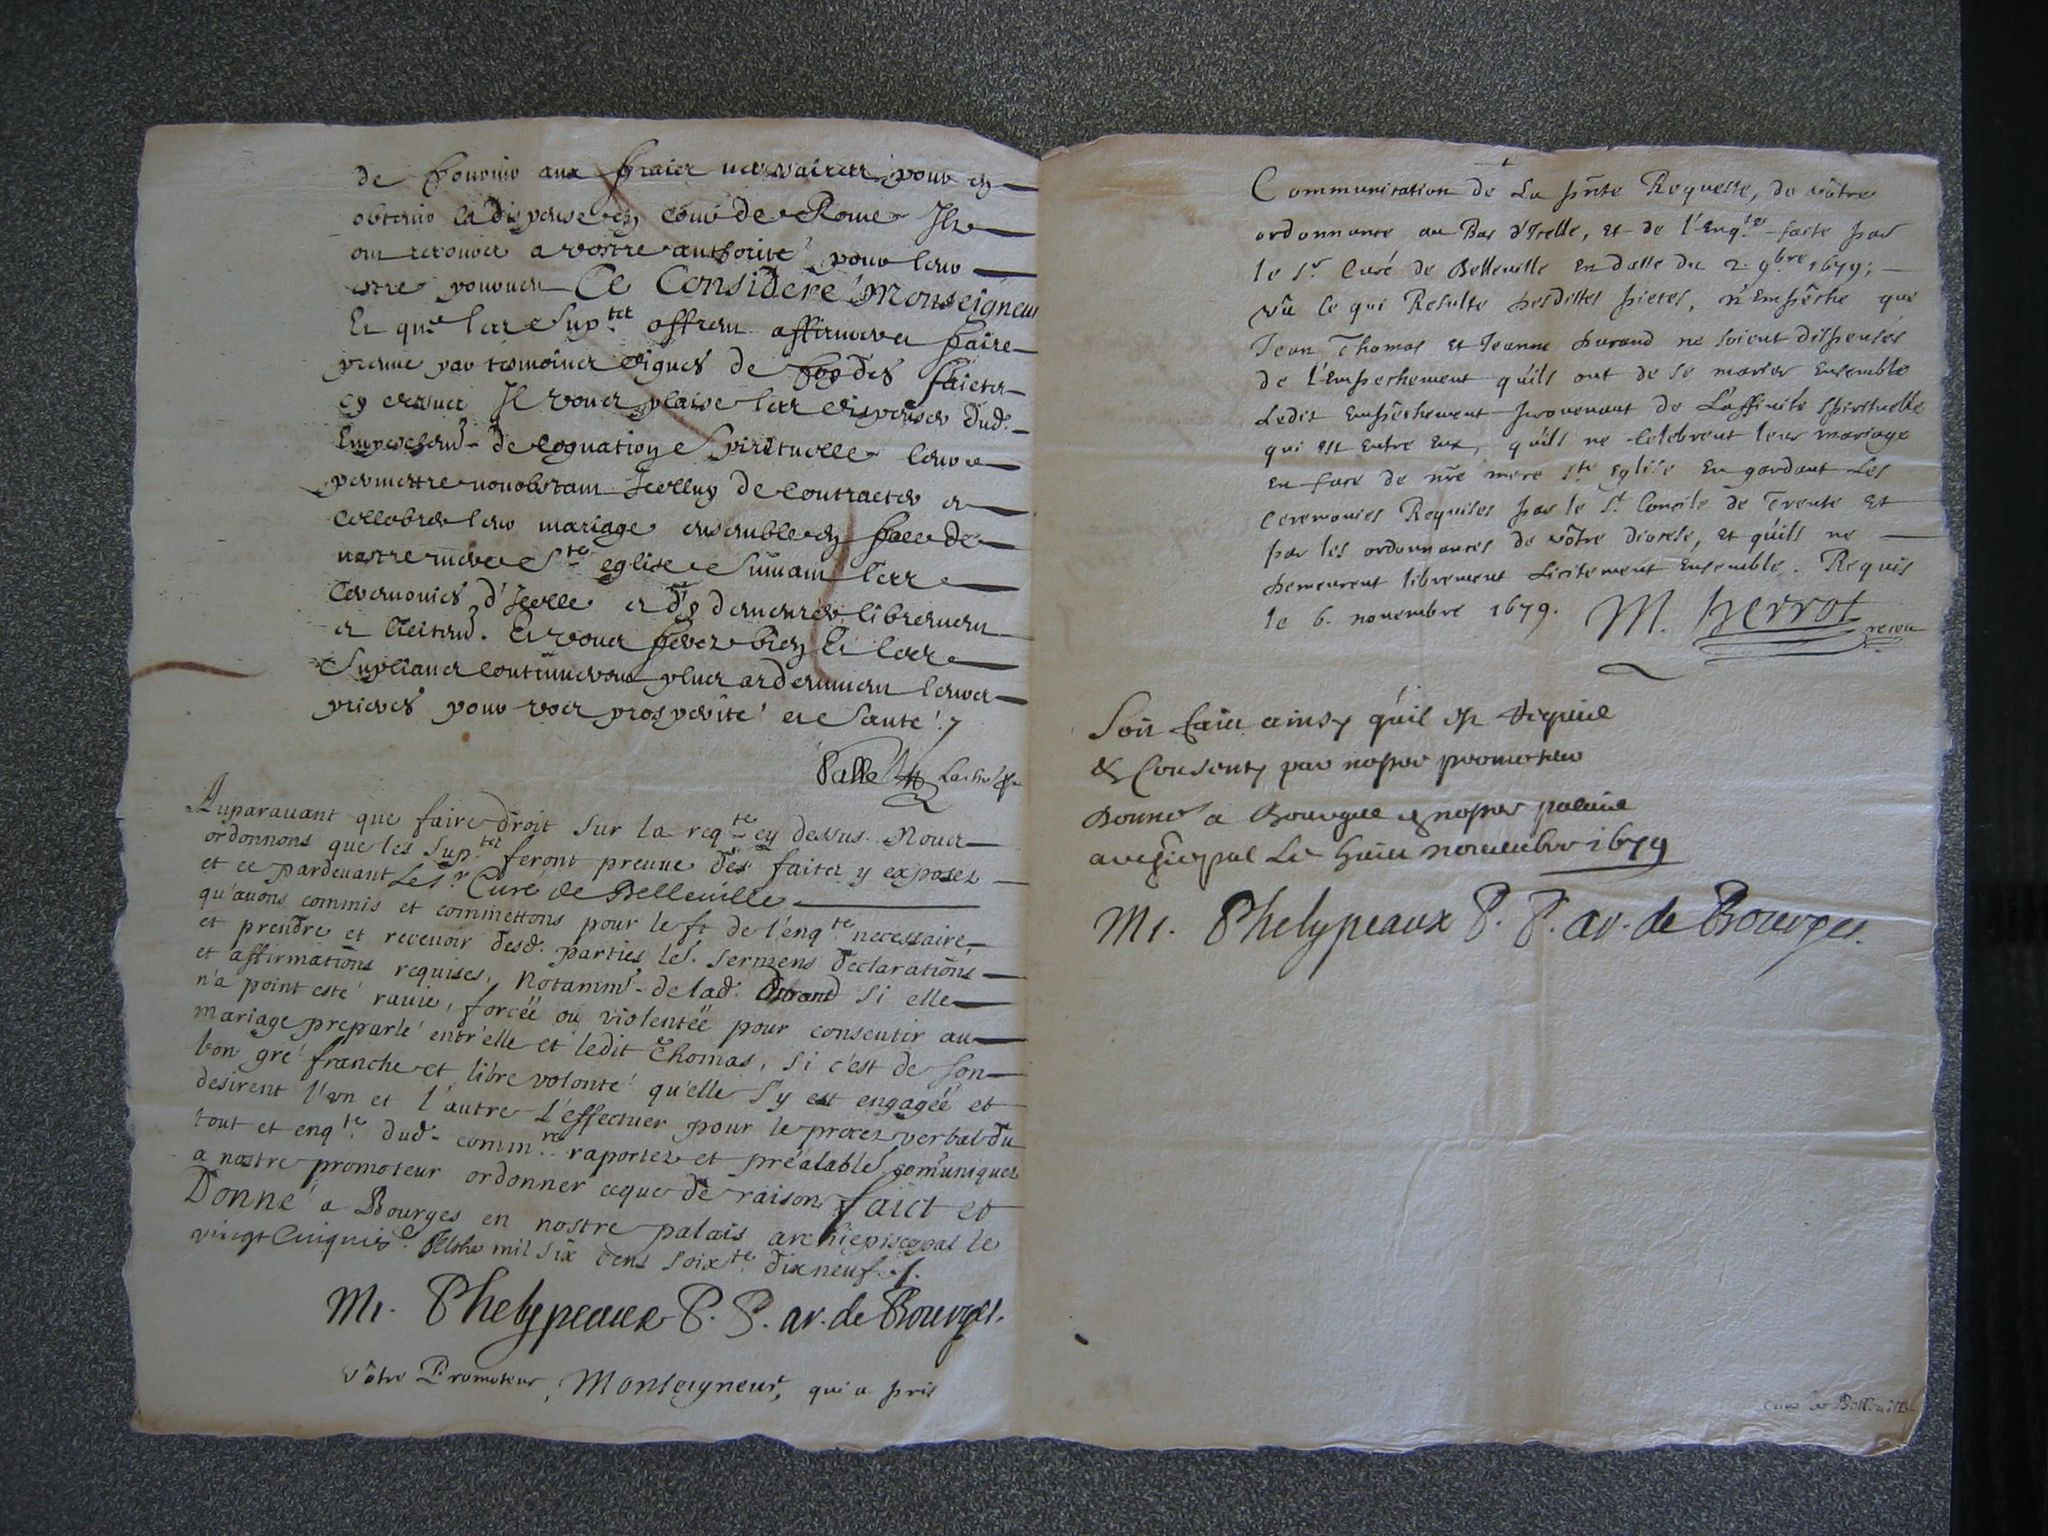 de fournir aux fraiz necessaires pour en
obtenir la dispense en cour de Rome Ilz
ont recouru a vostre authorité pour leur
estre pourveu Ce Consideré Monseigneur
Et que les Sup.tz offrent affirmer et faire
preuve par tesmoins dignes de foy des faictz
cy dessus Il vous plaise les dispenser dud.
Empeschem.t de Cognation Spirituelle leur
permettre nonobstant Icelluy de Contracter et
Cellebrer leur mariage ensemble en face de
nostre mere S.te eglise Suivant les
Ceremonies d'Icelle et d'y demeurer librement
et licitem.t Et vous ferez bien Et les
Supliants Continueront plus ardemment leurs
prieres pour vostre prosperité et Santé
Auparavant que faire droit sur la req.te cy dessus. Nous
ordonnons que les Sup.tz feront preuve des faitz y exposez
et ce pardevant Le S.r Curé de Belleville
qu'avons commis et commettons pour le f.t de l'enq.te necessaire
et prendre et recevoir desd. parties les sermens declarations
et affirmations requises, Notamm.t de lad. Durand si elle
n'a point esté ravie, forcée ou violentée pour consentir au
mariage preparlé entr'elle et ledit Thomas, si c'est de son
bon gré franche et libre volonté qu'elle s'y est engagée et
desirent l'un et l'autre L'effectuer pour le procez verbal du
tout et enq.te dud. comm.re raportez et préalablem.t comuniquez
a nostre promoteur ordonner ceque de raison, faict et
Donné a Bourges en nostre palais archiepiscopal le
vingt Cinquie.e 8bre mil six cens soix.te dix neuf.
Mi. Phelypeaux P. P. ar. de Bourges.
vôtre Promoteur, Monseigneur, qui a pris
Communication de La pñte Requeste, de vôtre
ordonnance au Bas d'Icelle, et de l'Enq.te faite par
le S.r Curé de Belleville en datte du 2. 9.bre 1679;
vû ce qui Resulte desdittes pieces, n'Empêche que
Jean Thomas et Jeanne Durand ne soient dispensés
de l'Empechement qu'ils ont de se marier Ensemble
Ledit Empêchement provenant de Laffinité spirituelle
qui est entre Eux, qu'ils ne Celebrent leur mariage
en face de nrē mere s.te Eglise En gardant Les
Ceremonies Requises par le S.t Concile de Trente Et
par les ordonnances de vôtre diocese, et qu'ils ne
demeurent librement Licitement Ensemble. Requis
le 6. novembre 1679. M. perrot
Soit faict ainsy qu'il est Requis
& Consenty par nostre promoteur
Donné a Bourges en nostre palais
archiepiscopal Le huict novembre 1679
Mi. Phelypeaux P. P. ar. de Bourges.